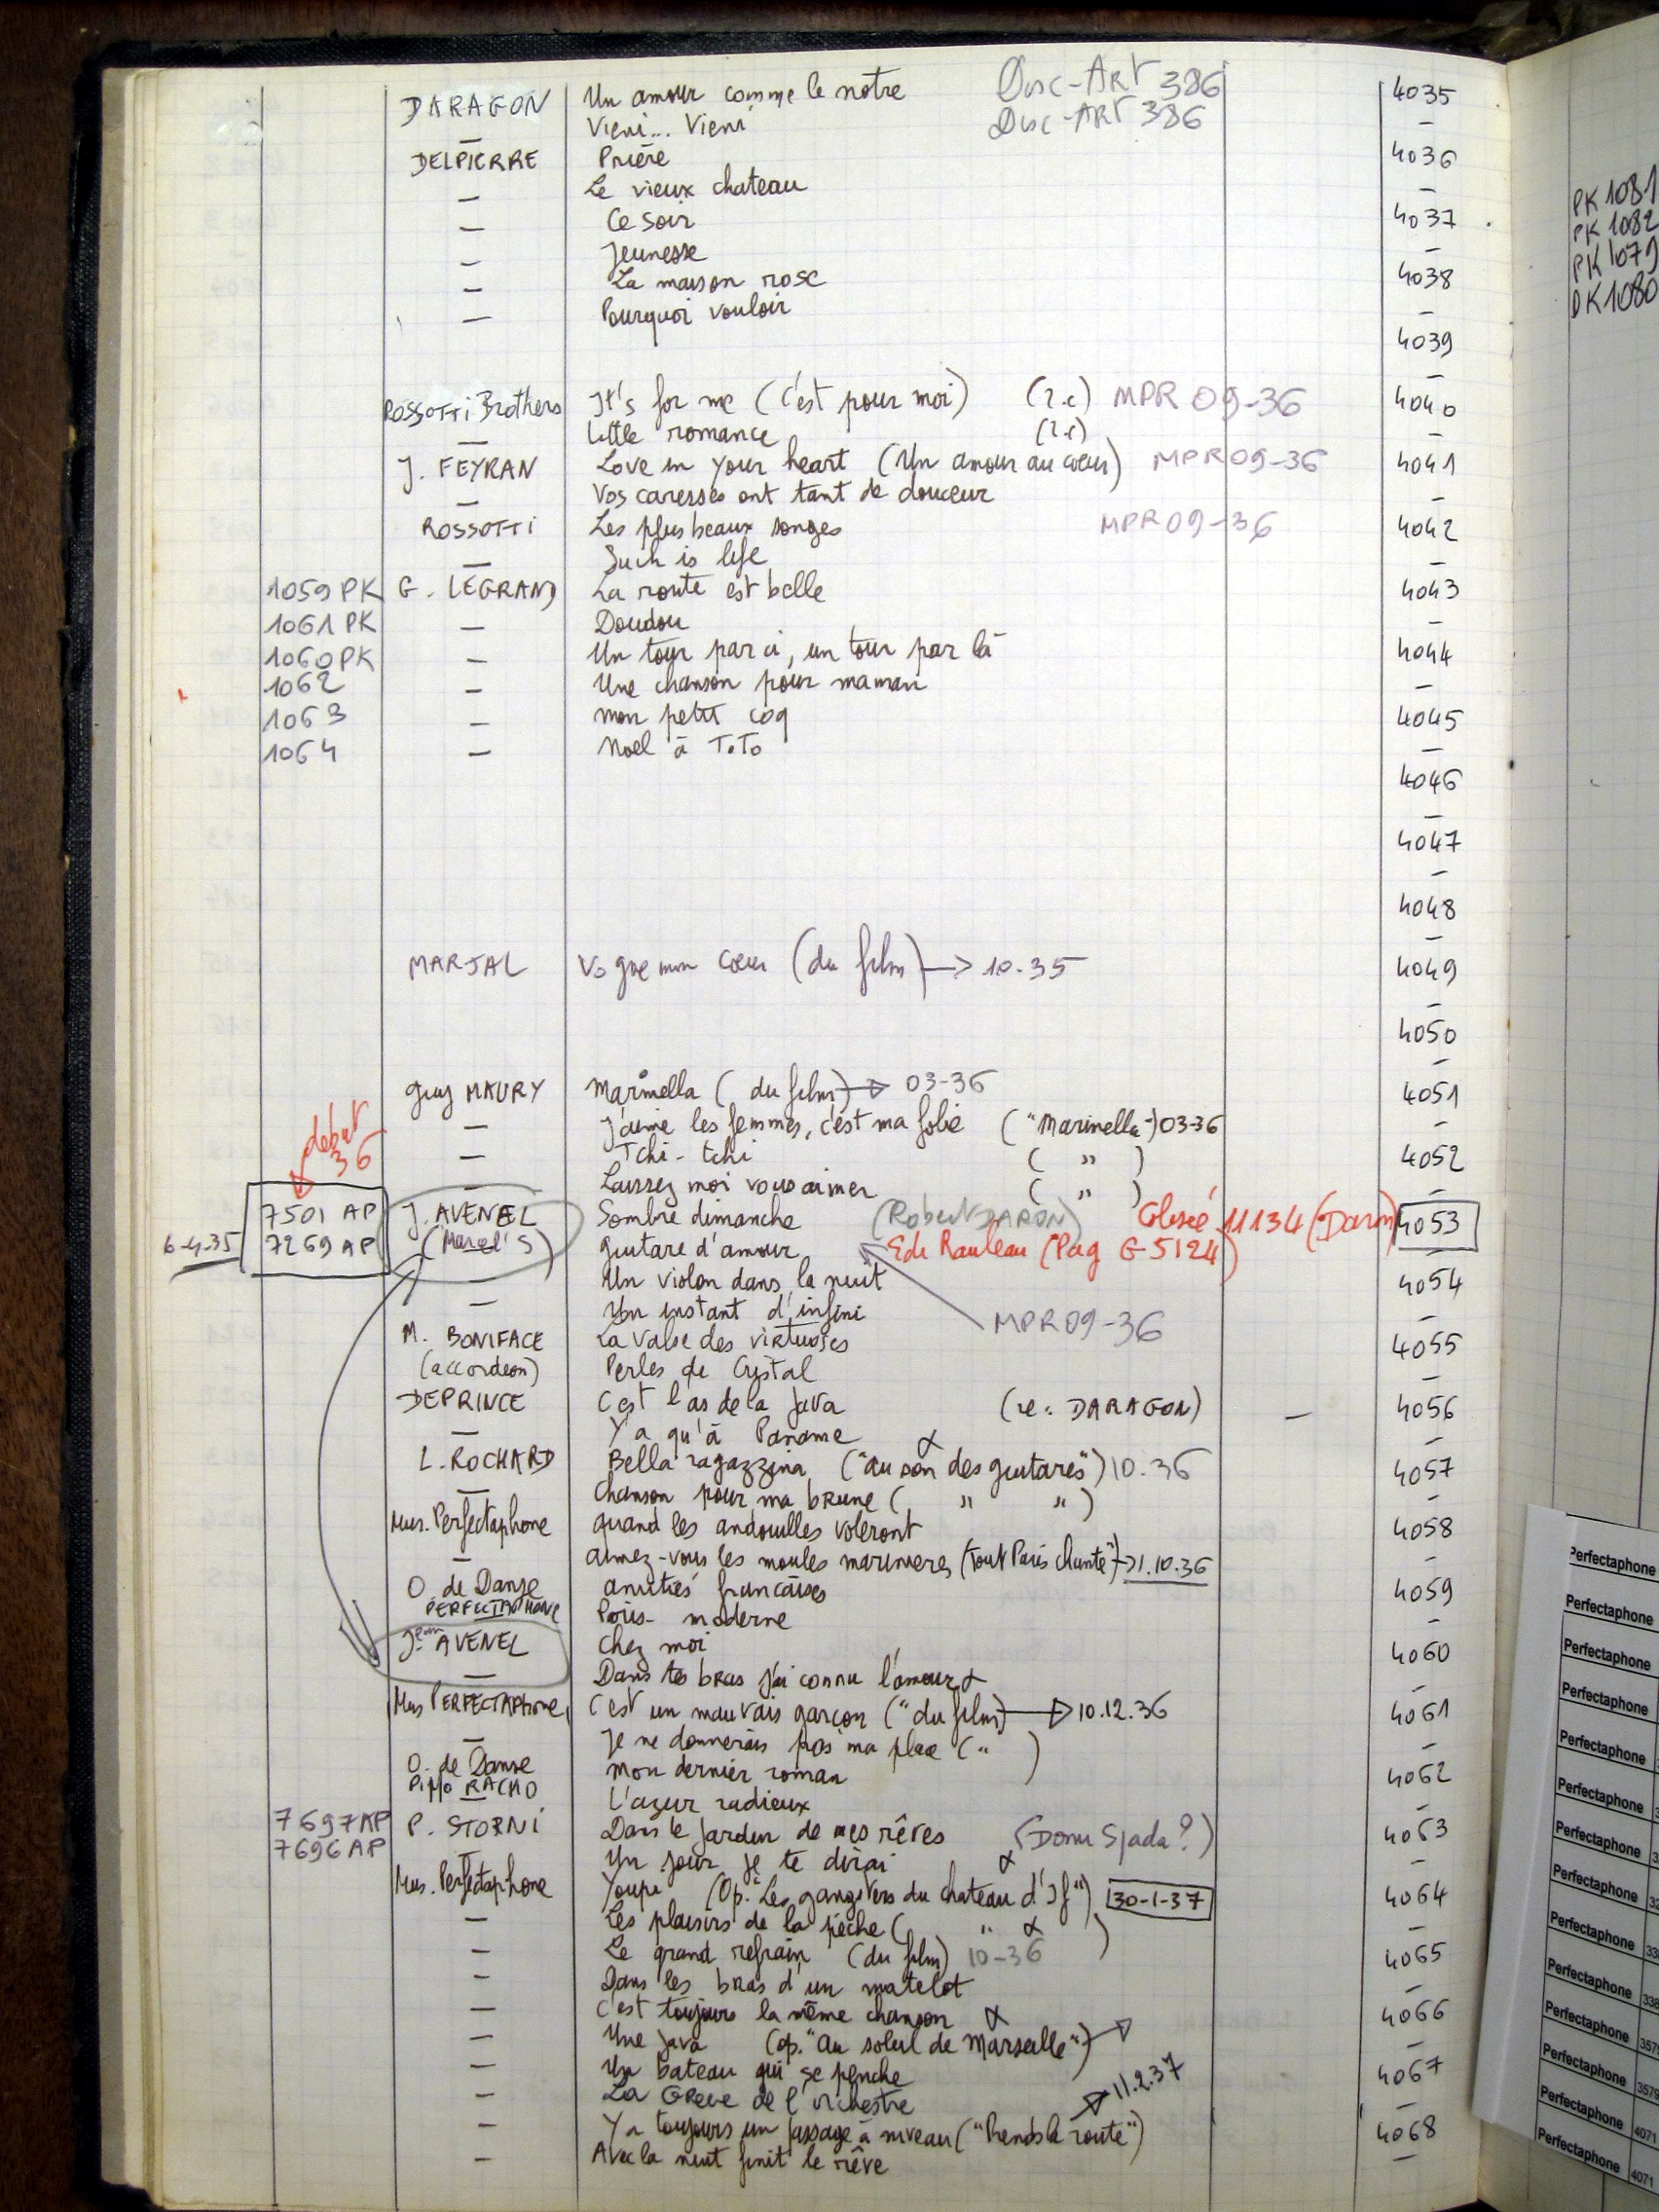 DARAGON Un amour comme le notre Disc-ART 386 4035
— Vieni... Vieni Disc-ART 386 —
DELPIERRE Prière 4036
— Le vieux chateau —
— Ce soir 4037
— Jeunesse —
— La maison rose 4038
— Pourquoi vouloir —
4039
—
ROSSOTTI Brothers It's for me (c'est pour moi) (r.c) MPR 09-36 4040
— Little romance (r.c) —
J. FEYRAN Love in your heart (Un amour au cœur) MPR 09-36 4041
— Vos caresses ont tant de douceur —
ROSSOTTI Les plus beaux songes MPR 09-36 4042
— Such is life —
1059 PK G. LEGRAND La route est belle 4043
1061 PK — Doudou —
1060 PK — Un tour par ci, un tour par là 4044
1062 — Une chanson pour maman —
1063 — Mon petit coq 4045
1064 — Noel à ToTo —
4046
—
4047
—
4048
—
MARJAL Vogue mon cœur (du film) → 10.35 4049
—
4050
—
Guy MAURY Marinella (du film) → 03-36 4051
— J'aime les femmes, c'est ma folie ("Marinella") 03-36 —
début 36
— Tchi-tchi ( " ) 4052
— Laissez moi vous aimer ( " ) —
7501 AP J. AVENEL Sombre dimanche (Robert DARON) Colisée 11134 (Daron) 4053
6-4-35 7269 AP (Marcel'S) guitare d'amour Ede Rauleau (Pag G-5124) —
— Un violon dans la nuit 4054
— Un instant d'infini MPR 09-36 —
M. BONIFACE La valse des virtuoses 4055
(accordeon) Perles de Crystal —
DEPRINCE C'est l'as de la java (re: DARAGON) — 4056
— Y'a qu'à Paname —
L. ROCHARD Bella ragazzina ("au son des guitares") 10.36 4057
— Chanson pour ma brune ( " " ) —
Mus. Perfectaphone quand les andouilles voleront 4058
— aimez-vous les moules marinieres ("Tout Paris chante") → 1.10.36 —
O. de Danse amitiés francaises 4059
PERFECTAPHONE Paris-moderne —
Jean AVENEL Chez moi 4060
— Dans tes bras j'ai connu l'amour —
Mus PERFECTAPHONE C'est un mauvais garçon ("du film) → 10.12.36 4061
— Je ne donnerais pas ma place (" ) —
O. de Danse Mon dernier roman 4062
Pippo RACHO L'azur radieux —
7697 AP P. STORNI Dans le jardin de mes rêves (Donu Sjada?) 4063
7696 AP — Un jour je te dirai —
Mus. Perfectaphone Youpe (Op. "Les gangsters du chateau d'If") 30-1-37 4064
— Les plaisirs de la pêche ( " ) —
— Le grand refrain (du film) 10-36 4065
— Dans les bras d'un matelot —
— C'est toujours la même chanson 4066
— Une java (op. "Au soleil de Marseille") → —
— Un bateau qui se penche 4067
— La Greve de l'orchestre → 11.2.37 —
— Y a toujours un passage à niveau ("Prends la route") 4068
— Avec la nuit finit le rêve —
PK 1081
PK 1082
PK 1079
PK 1080
Perfectaphone
Perfectaphone
Perfectaphone
Perfectaphone
Perfectaphone
Perfectaphone
Perfectaphone
Perfectaphone
Perfectaphone
Perfectaphone
Perfectaphone
Perfectaphone
Perfectaphone 4071
Perfectaphone 4071